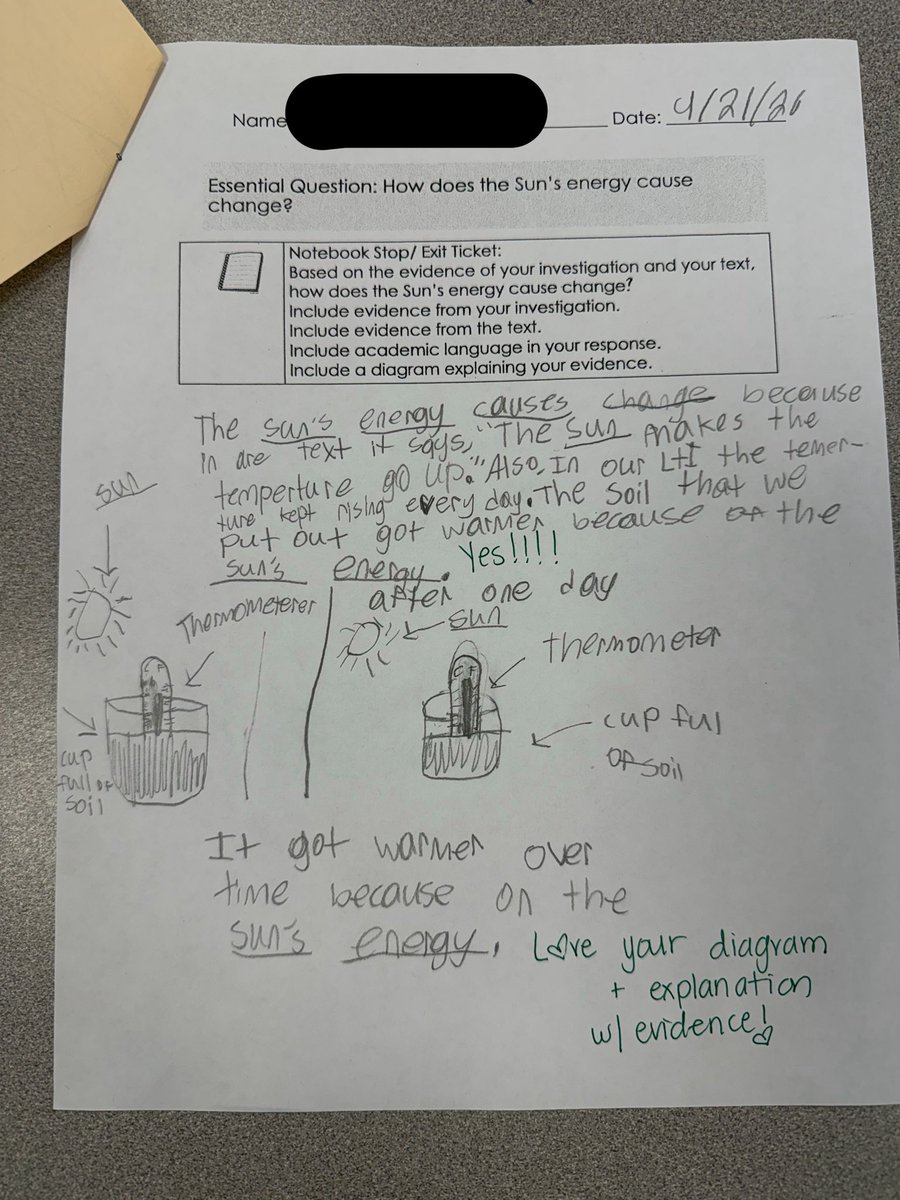 Name
Date: 4/21/26
Essential Question: How does the Sun's energy cause
change?
Notebook Stop/ Exit Ticket:
Based on the evidence of your investigation and your text,
how does the Sun's energy cause change?
Include evidence from your investigation.
Include evidence from the text.
Include academic language in your response.
Include a diagram explaining your evidence.
The sun's energy causes change because
in are text it says, "The sun makes the
temperture go up." Also, In our LtI the temer-
ture kept rising every day. The soil that we
put out got warmer because of the
sun's energy. Yes!!!!
sun
Thermometerer
cup
full of
soil
after one day
sun
thermometer
cup full
of soil
It got warmer over
time because on the
sun's energy.
Love your diagram
+ explanation
w/ evidence!